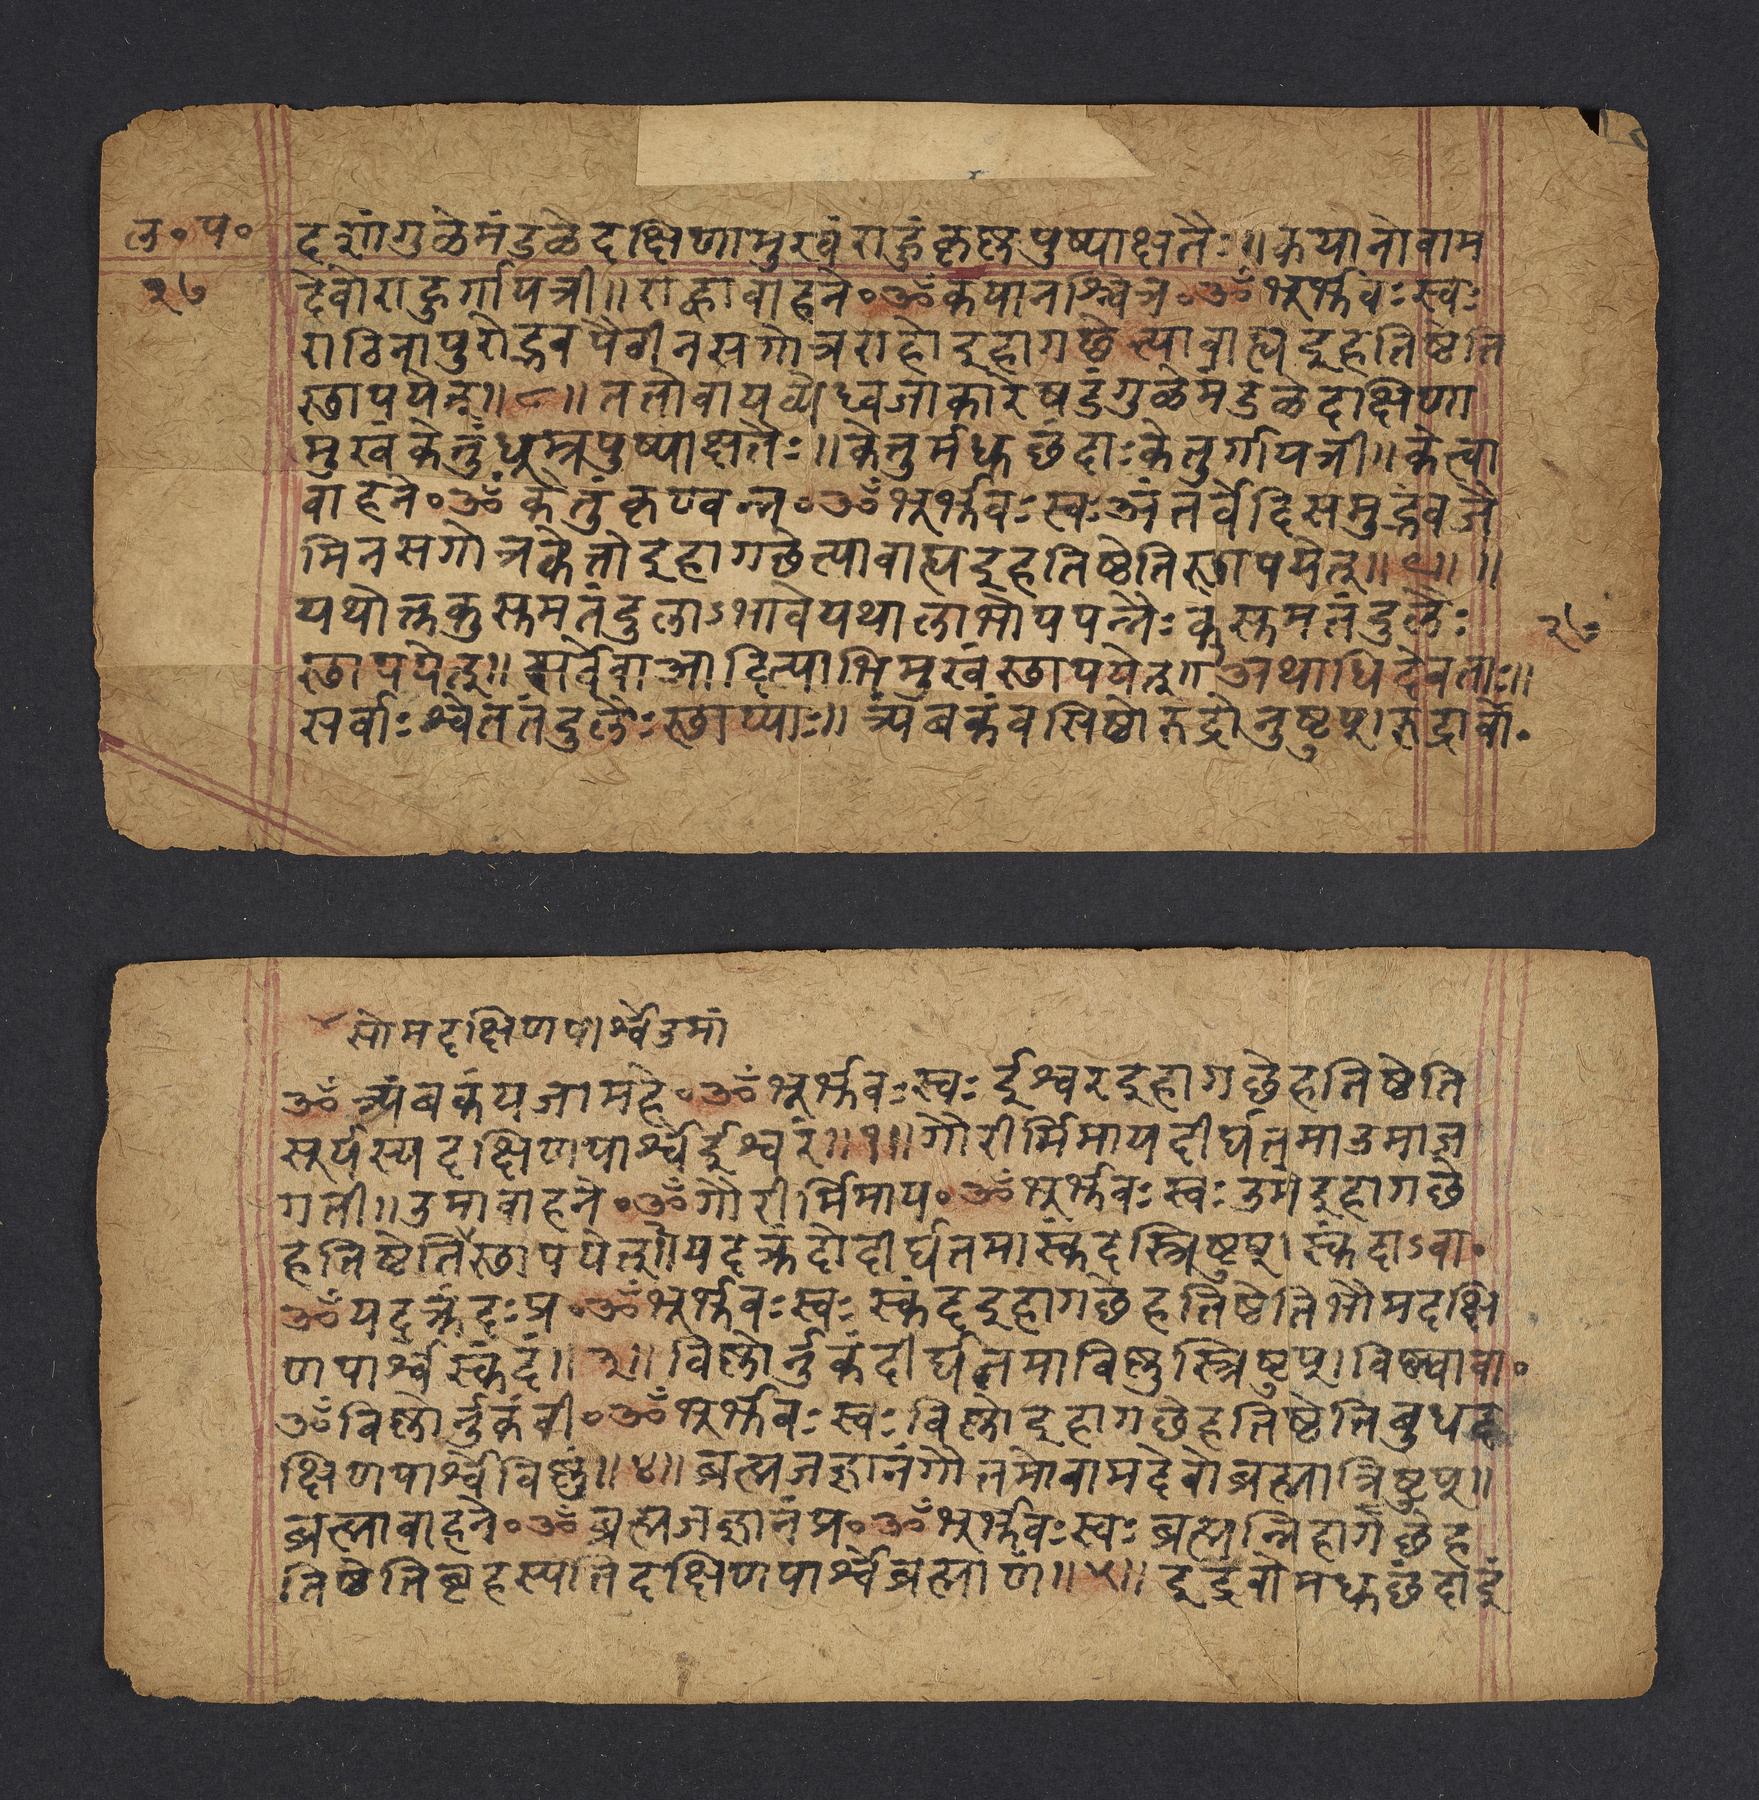 ल॰ प॰
२७
दशांगुळेमंडळेदक्षिणामुखंराहुंकृष्णपुष्पाक्षतैः॥कयानोवाम
देवोराहुर्गायत्री॥राह्वावाहने॰ॐकयानश्चित्र॰ॐभूर्भुवःस्वः
राठिनापुरोद्भवपैठीनसगोत्रराहोइहागछेत्यावाह्यइहतिष्ठेति
स्थापयेत्॥८॥ततोवायव्येध्वजाकारेषडंगुळेमंडळेदक्षिणा
मुखंकेतुंधूम्रपुष्पाक्षतैः॥केतुर्मधुछंदाःकेतुर्गायत्री॥केत्वा
वाहने॰ॐकेतुंकृण्वन्न॰ॐभूर्भुवःस्वःअंतर्वेदिसमुद्भवजै
मिनसगोत्रकेतोइहागछेत्यावाह्यइहतिष्ठेतिस्थापयेत्॥९॥॥
यथोक्तकुसुमतंदुलाऽभावेयथालाभोपपन्नैःकुसुमतंदुलैः
२७
स्थापयेत्॥सर्वेवाआदित्याभिमुखंस्थापयेत्॥अथाधिदेवताः॥
सर्वाःश्वेततंदुलैःस्थाप्याः॥त्र्यंबकंवसिष्ठोरुद्रोनुष्टुप्।रुद्रावा॰
सोमदक्षिणपार्श्वेउमां
ॐत्र्यंबकंयजामहे॰ॐभूर्भुवःस्वःईश्वरइहागछेहतिष्ठेति
सूर्यस्यदक्षिणपार्श्वेईश्वरं॥१॥गौरीर्मिमायदीर्घतमाउमाज
गती॥उमावाहने॰ॐगौरीर्मिमाय॰ॐभूर्भुवःस्वःउमेइहागछे
हतिष्ठेतिस्थापयेत्॥यदक्रंदोदीर्घतमास्कंदस्त्रिष्टुप्।स्कंदाऽवा॰
ॐयदक्रंदःप्र॰ॐभूर्भुवःस्वःस्कंदइहागछेहतिष्ठेतिभौमदक्षि
णपार्श्वेस्कंदं॥३॥विष्णोर्नुकंदीर्घतमाविष्णुस्त्रिष्टुप्।विष्ण्वावा॰
ॐविष्णोर्नुकंवी॰ॐभूर्भुवःस्वःविष्णोइहागछेहतिष्ठेतिबुधद
क्षिणपार्श्वेविष्णुं॥४॥ब्रह्मजज्ञानंगौतमोवामदेवोब्रह्मात्रिष्टुप्॥
ब्रह्मावाहने॰ॐब्रह्मजज्ञानंप्र॰ॐभूर्भुवःस्वःब्रह्मन्निहागछेह
तिष्ठेतिबृहस्पतिदक्षिणपार्श्वेब्रह्माणं॥५॥इंद्रंवोमधुछंदाइं